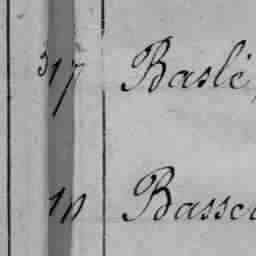 317 Baslé,
10 Basse